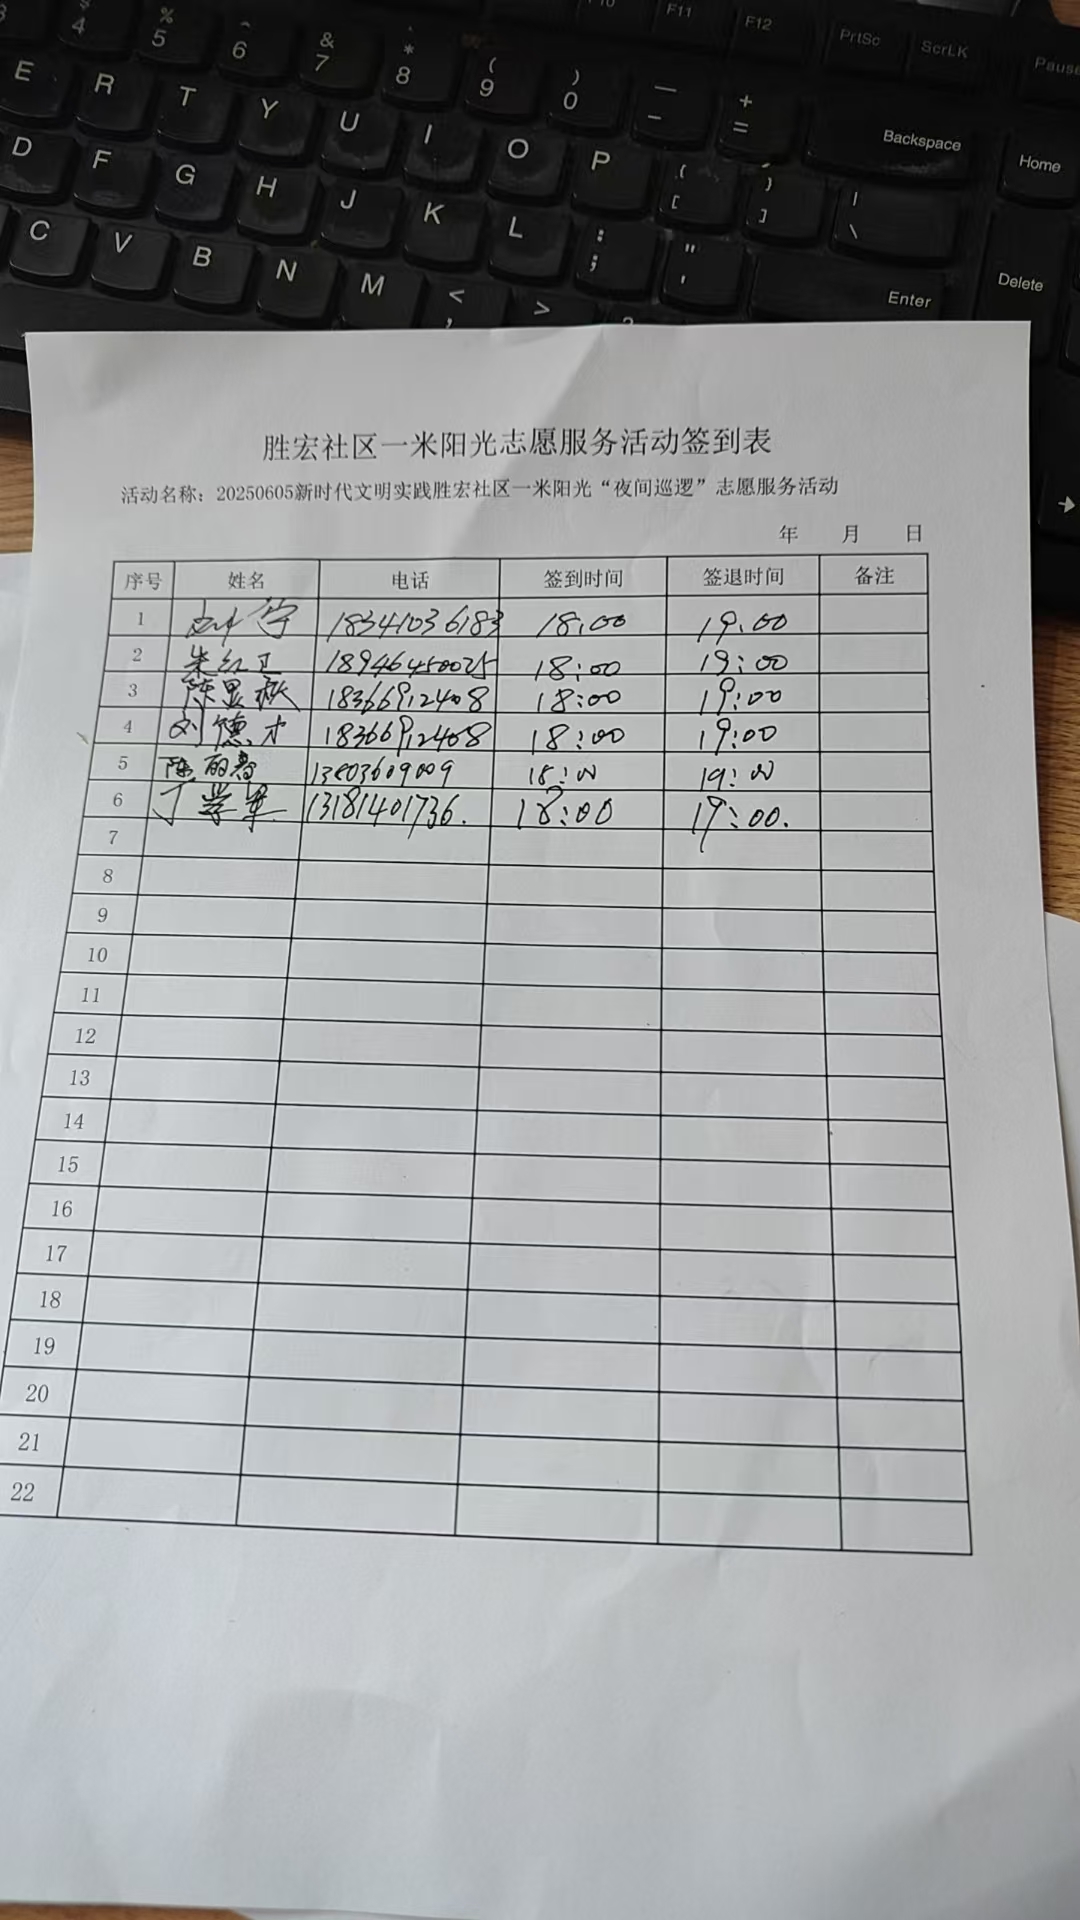 $ 4 % 5 ^ 6 & 7 * 8 ( 9 ) 0 — - + = Backspace Home
F11 F12 PrtSc ScrLK Pause
E R T Y U I O P { [ } ] | \
D F G H J K L : ; " ' Enter Delete
C V B N M < , >
胜宏社区一米阳光志愿服务活动签到表
活动名称：20250605新时代文明实践胜宏社区一米阳光“夜间巡逻”志愿服务活动
年 月 日
序号 姓名 电话 签到时间 签退时间 备注
1 18341036183 18:00 19:00
2 朱红卫 18946450025 18:00 19:00
3 陈显秋 18366912408 18:00 19:00
4 刘德才 18366912408 18:00 19:00
5 陈丽春 13803609009 18:00 19:00
6 丁学军 13181401736. 18:00 19:00.
7
8
9
10
11
12
13
14
15
16
17
18
19
20
21
22